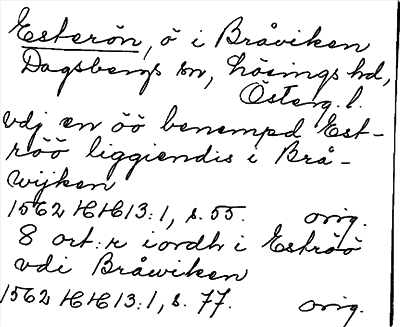 Esterön, ö i Bråviken
Dagsbergs sn, Lösings hd,
Österg. l.
vdj en öö benempd Est-
röö liggiendis i Brå-
wijken
1562 HH13:1, s. 55. orig.
8 ort:r iordh i Eströö
vdi Bråwiken
1562 HH13:1, s. 77. orig.